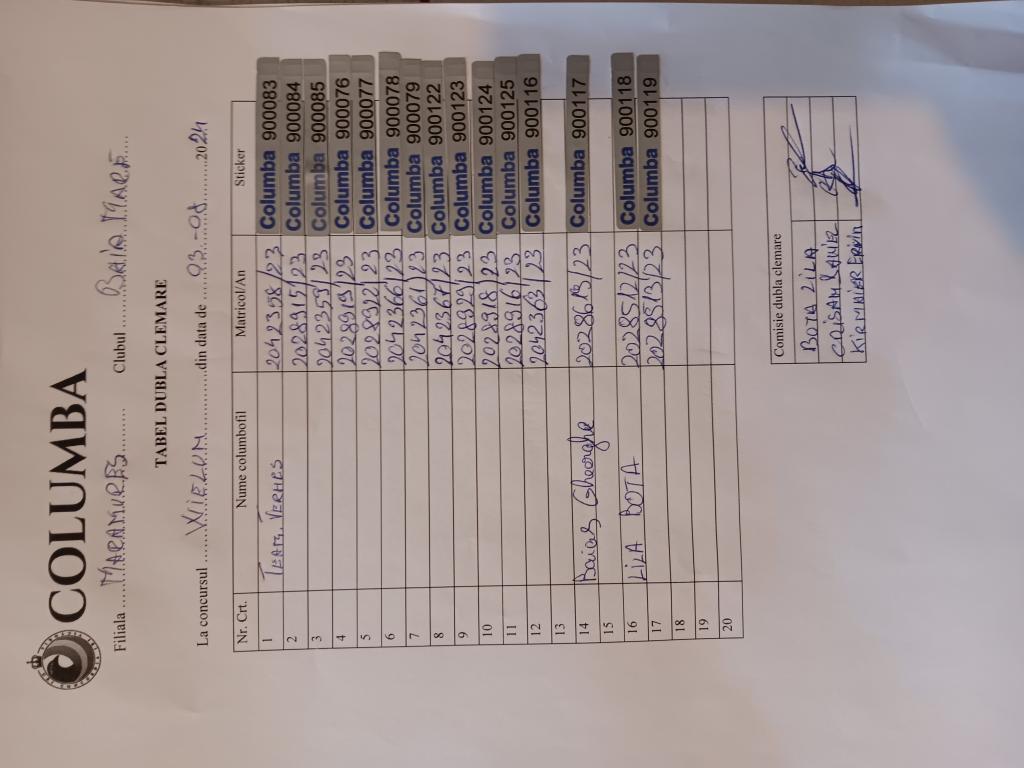 COLUMBA
Filiala ....MARAMUREȘ.......... Clubul .......BAIA MARE....
TABEL DUBLA CLEMARE
La concursul ......WIELUM..........din data de ....03-08..........2024
Nr. Crt. Nume columbofil Matricol/An Sticker
1 TEAM VERMES 2042358/23 Columba 900083
2 2028915/23 Columba 900084
3 2042355/23 Columba 900085
4 2028919/23 Columba 900076
5 2028932/23 Columba 900077
6 2042366/23 Columba 900078
7 2042361/23 Columba 900079
8 2042367/23 Columba 900122
9 2028923/23 Columba 900123
10 2028918/23 Columba 900124
11 2028916/23 Columba 900125
12 2042363/23 Columba 900116
13
14 Baias Gheorghe 2028613/23 Columba 900117
15
16 LILA BOTA 2028512/23 Columba 900118
17 2028513/23 Columba 900119
18
19
20
Comisie dubla clemare
BOTA LILA
KIRMINIER ERVIN